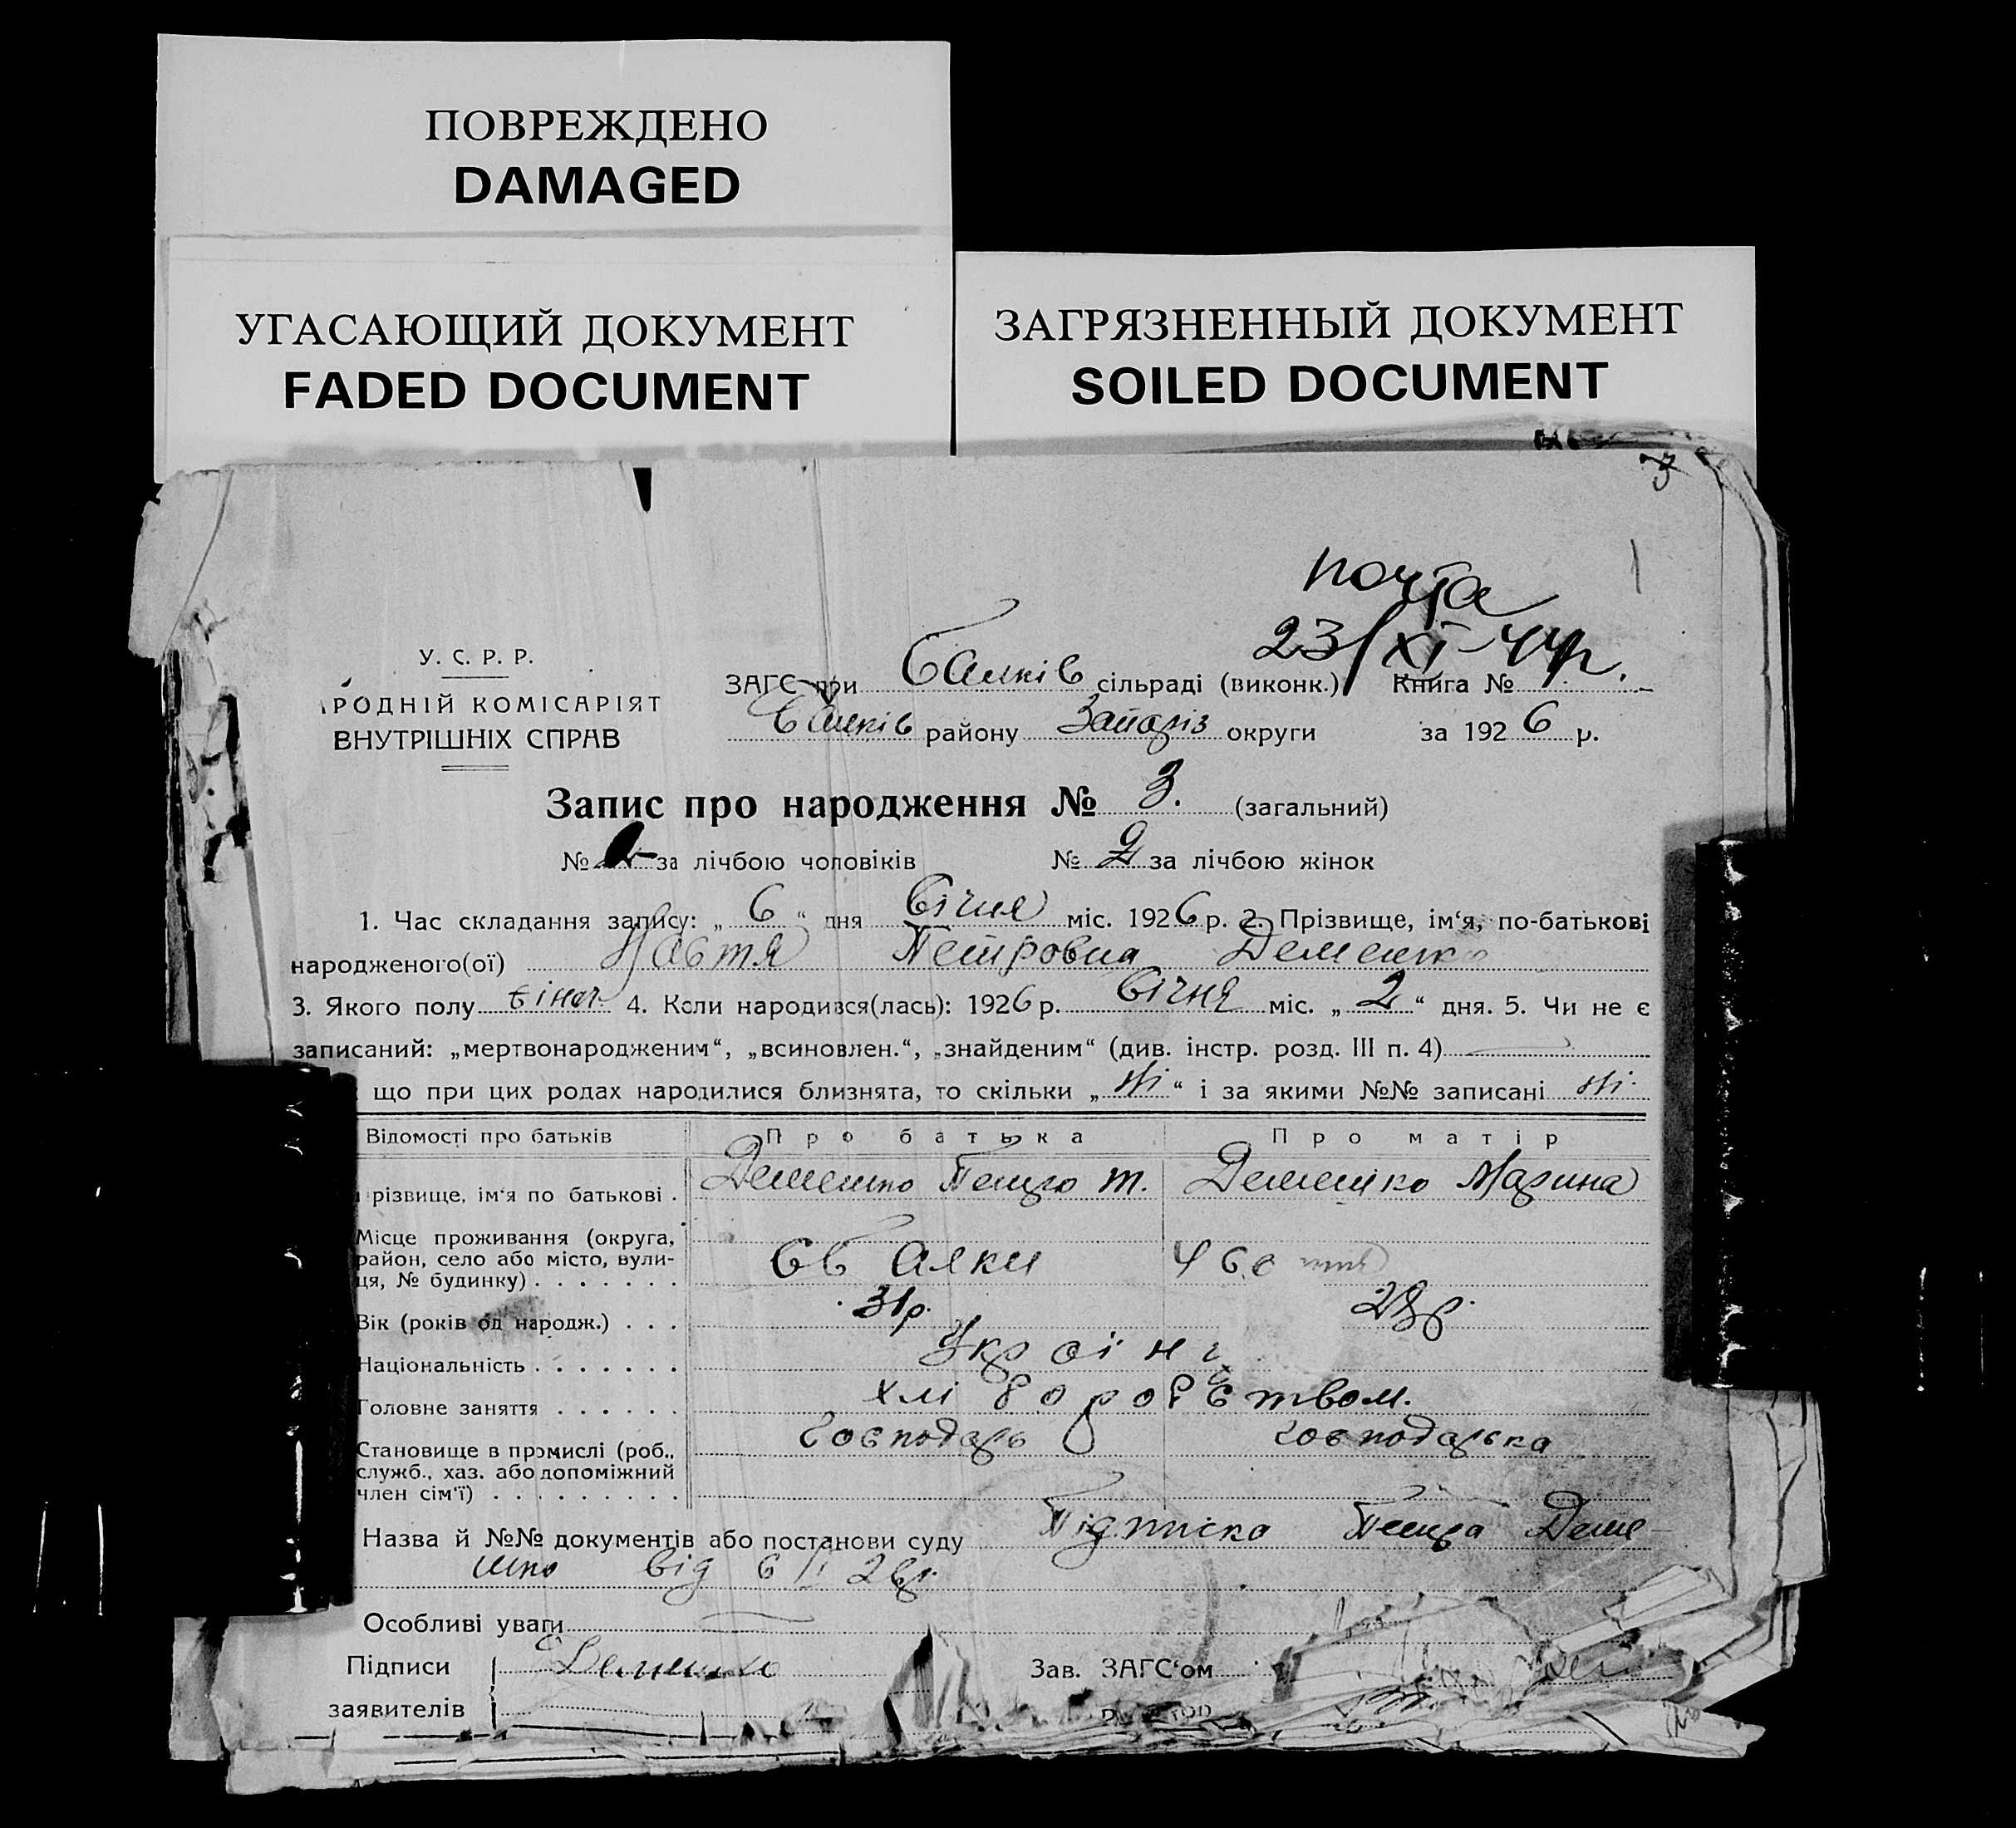 ПОВРЕЖДЕНО
DAMAGED
УГАСАЮЩИЙ ДОКУМЕНТ
FADED DOCUMENT
ЗАГРЯЗНЕННЫЙ ДОКУМЕНТ
SOILED DOCUMENT
3
почта
23/XI-44р.
У. С. Р. Р.
РОДНІЙ КОМІСАРІЯТ
ВНУТРІШНІХ СПРАВ
ЗАГС при Балків сільраді (виконк.) Книга №
Балків району Запоріз округи за 1926 р.
Запис про народження № 3. (загальний)
№ за лічбою чоловіків № 2 за лічбою жінок
1. Час складання запису: „ 6 “ дня Січня міс. 1926 р. 2. Прізвище, ім‘я, по-батькові
народженого(ої) Настя Петровна Деменко
3. Якого полу жіноч. 4. Коли народився(лась): 1926 р. Січня міс. „ 2 “ дня. 5. Чи не є
записаний: „мертвонародженим“, „всиновлен.“, „знайденим“ (див. інстр. розд. III п. 4)
що при цих родах народилися близнята, то скільки „ ні “ і за якими №№ записані ні
Відомості про батьків Про батька Про матір
різвище, ім‘я по батькові . Деменко Петро Т. Деменко Марина
Місце проживання (округа,
район, село або місто, вули-
ця, № будинку) . . . . . . . Балки
Вік (років од народж.) . . . 31р. 28р.
Національність . . . . . . . Україн
Головне заняття . . . . . . хліборобством.
Становище в промислі (роб., Господарь господарька
служб., хаз. або допоміжний
член сім‘ї) . . . . . . . . .
Назва й №№ документів або постанови суду Підписка Петра Деме
нко від 6/I 26р.
Особливі уваги
Підписи Деменко Зав. ЗАГС‘ом
заявителів